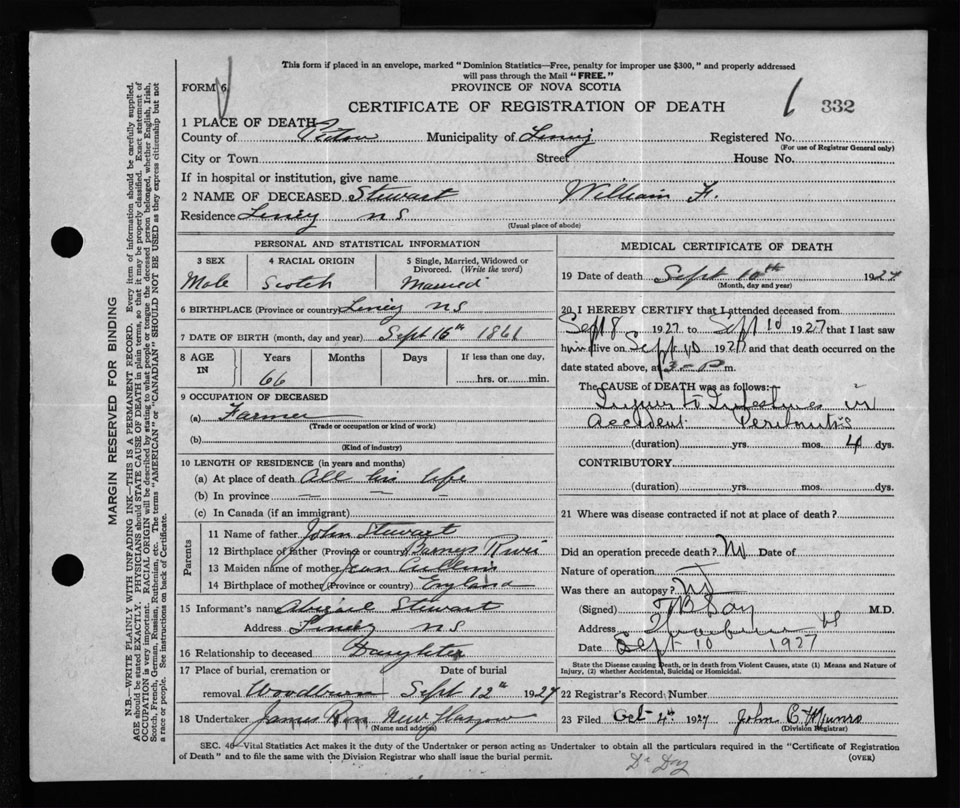 This form if placed in an envelope, marked "Dominion Statistics—Free, penalty for improper use $300," and properly addressed
will pass through the Mail "FREE."
FORM 6 PROVINCE OF NOVA SCOTIA
CERTIFICATE OF REGISTRATION OF DEATH 332
1 PLACE OF DEATH
County of Pictou Municipality of Registered No.
(For use of Registrar General only)
City or Town Street House No.
If in hospital or institution, give name
2 NAME OF DECEASED Stewart William F.
Residence N S
(Usual place of abode)
PERSONAL AND STATISTICAL INFORMATION
3 SEX 4 RACIAL ORIGIN 5 Single, Married, Widowed or
Divorced. (Write the word)
Male Scotch Married
6 BIRTHPLACE (Province or country) N S
7 DATE OF BIRTH (month, day and year) Sept 16th 1861
8 AGE IN Years Months Days If less than one day,
66 hrs. or min.
9 OCCUPATION OF DECEASED
(a) Farmer
(Trade or occupation or kind of work)
(b)
(Kind of industry)
10 LENGTH OF RESIDENCE (in years and months)
(a) At place of death All his life
(b) In province — — —
(c) In Canada (if an immigrant)
Parents
11 Name of father John Stewart
12 Birthplace of father (Province or country) Barneys River
13 Maiden name of mother Jean
14 Birthplace of mother (Province or country) England
15 Informant's name Abigail Stewart
Address N S
16 Relationship to deceased Daughter
17 Place of burial, cremation or Date of burial
removal Woodburn Sept 12th 1927
18 Undertaker James New Glasgow
(Name and address)
MEDICAL CERTIFICATE OF DEATH
19 Date of death Sept 10th 1927
(Month, day and year)
20 I HEREBY CERTIFY that I attended deceased from
Sept 8 1927 to Sept 10 1927 that I last saw
him alive on Sept 10 1927 and that death occurred on the
date stated above, at 3 – P m.
The CAUSE OF DEATH was as follows:
Injury to Intestines in
accident. Peritonitis
(duration) yrs. mos. 4 dys.
CONTRIBUTORY
(duration) yrs. mos. dys.
21 Where was disease contracted if not at place of death?
Did an operation precede death? No Date of
Nature of operation
Was there an autopsy? No
(Signed) M.D.
Address NS
Date Sept 10 1927
State the Disease causing Death, or in death from Violent Causes, state (1) Means and Nature of
Injury, (2) whether Accidental, Suicidal or Homicidal.
22 Registrar's Record Number
23 Filed Oct 4th 1927 John C Munro
(Division Registrar)
SEC. 40—Vital Statistics Act makes it the duty of the Undertaker or person acting as Undertaker to obtain all the particulars required in the "Certificate of Registration
of Death" and to file the same with the Division Registrar who shall issue the burial permit. (OVER)
Dr Day
MARGIN RESERVED FOR BINDING
N.B.—WRITE PLAINLY WITH UNFADING INK—THIS IS A PERMANENT RECORD. Every item of information should be carefully supplied.
AGE should be stated EXACTLY. PHYSICIANS should STATE CAUSE OF DEATH in plain terms, so that it may be properly classified. Exact statement of
OCCUPATION is very important. RACIAL ORIGIN will be described by stating to what people or tongue the deceased person belonged, whether English, Irish,
Scotch, French, German, Russian, Ruthenian, etc. The terms "AMERICAN" or "CANADIAN" SHOULD NOT BE USED as they express citizenship but not
a race or people. See instructions on back of Certificate.